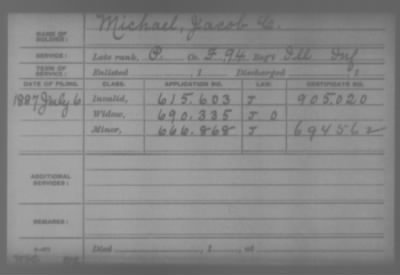 NAME OF SOLDIER: Michael, Jacob C.
SERVICE: Late rank, P. Co. F 94 Reg't Ill Inf
TERM OF SERVICE: Enlisted , 1 Discharged , 1
DATE OF FILING. CLASS. APPLICATION NO. LAW. CERTIFICATE NO.
1887 July 6 Invalid, 615.603 J 905.020
Widow, 690.335 J O
Minor, 666.868 J 694562
ADDITIONAL SERVICES:
REMARKS:
Died , 1 , at